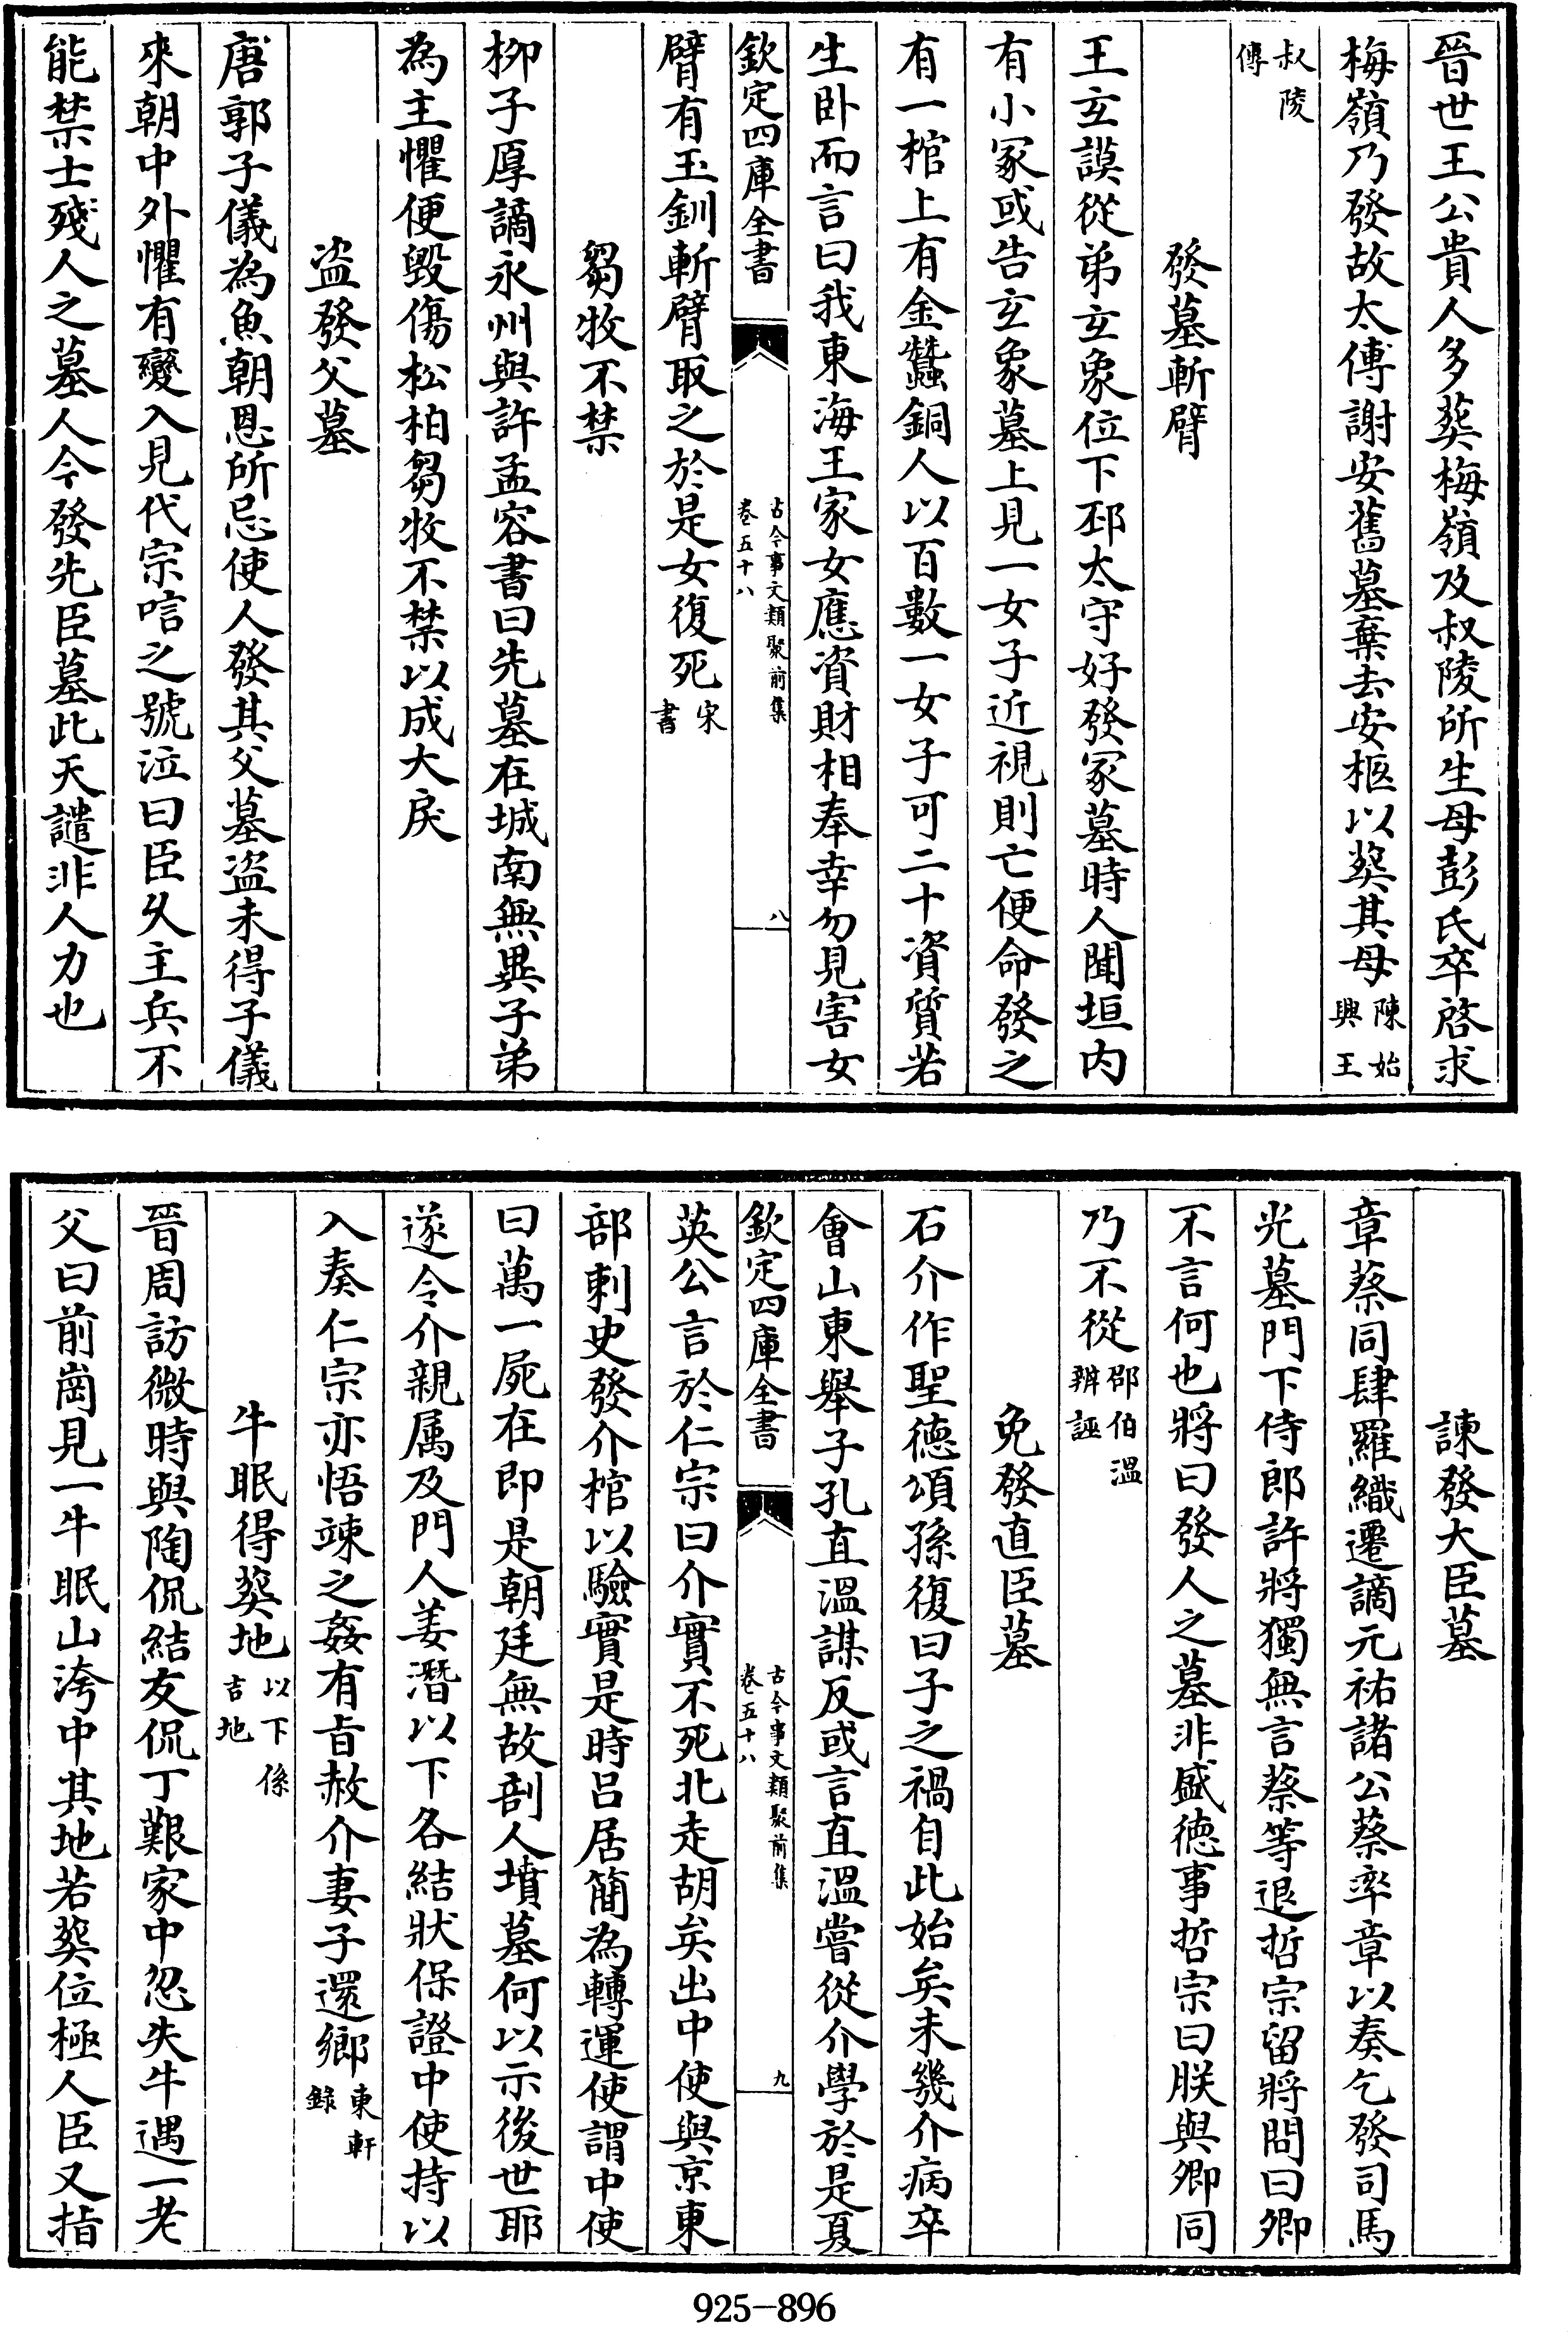 晉世王公貴人多葬梅嶺及叔陵所生母彭氏卒啓求
梅嶺乃發故太傅謝安舊墓棄去安柩以葬其母陳始興王
叔陵傳
發墓斬臂
王玄謨從弟玄象位下邳太守好發冢墓時人聞垣内
有小冢或告玄象墓上見一女子近視則亡便命發之
有一棺上有金蠶銅人以百數一女子可二十資質若
生卧而言曰我東海王家女應資財相奉幸勿見害女
欽定四庫全書
古今事文類聚前集
卷五十八
八
臂有玉釧斬臂取之於是女復死宋書
芻牧不禁
柳子厚謫永州與許孟容書曰先墓在城南無異子弟
為主懼便毁傷松柏芻牧不禁以成大戾
盗發父墓
唐郭子儀為魚朝恩所忌使人發其父墓盗未得子儀
來朝中外懼有變入見代宗唁之號泣曰臣乆主兵不
能禁士殘人之墓人今發先臣墓此天譴非人力也
諫發大臣墓
章蔡同肆羅織遷謫元祐諸公蔡率章以奏乞發司馬
光墓門下侍郎許將獨無言蔡等退哲宗留將問曰卿
不言何也將曰發人之墓非盛徳事哲宗曰朕與卿同
乃不從邵伯溫辨誣
免發直臣墓
石介作聖徳頌孫復曰子之禍自此始矣未幾介病卒
會山東舉子孔直溫謀反或言直溫嘗從介學於是夏
欽定四庫全書
古今事文類聚前集
卷五十八
九
英公言於仁宗曰介實不死北走胡矣出中使與京東
部刺史發介棺以驗實是時吕居簡為轉運使謂中使
曰萬一屍在即是朝廷無故剖人墳墓何以示後世耶
遂令介親属及門人姜潛以下各結狀保證中使持以
入奏仁宗亦悟竦之姦有㫖赦介妻子還鄉東軒錄
牛眠得葬地以下係吉地
晉周訪微時與陶侃結友侃丁艱家中忽失牛遇一老
父曰前崗見一牛眠山洿中其地若葬位極人臣又指
925-896